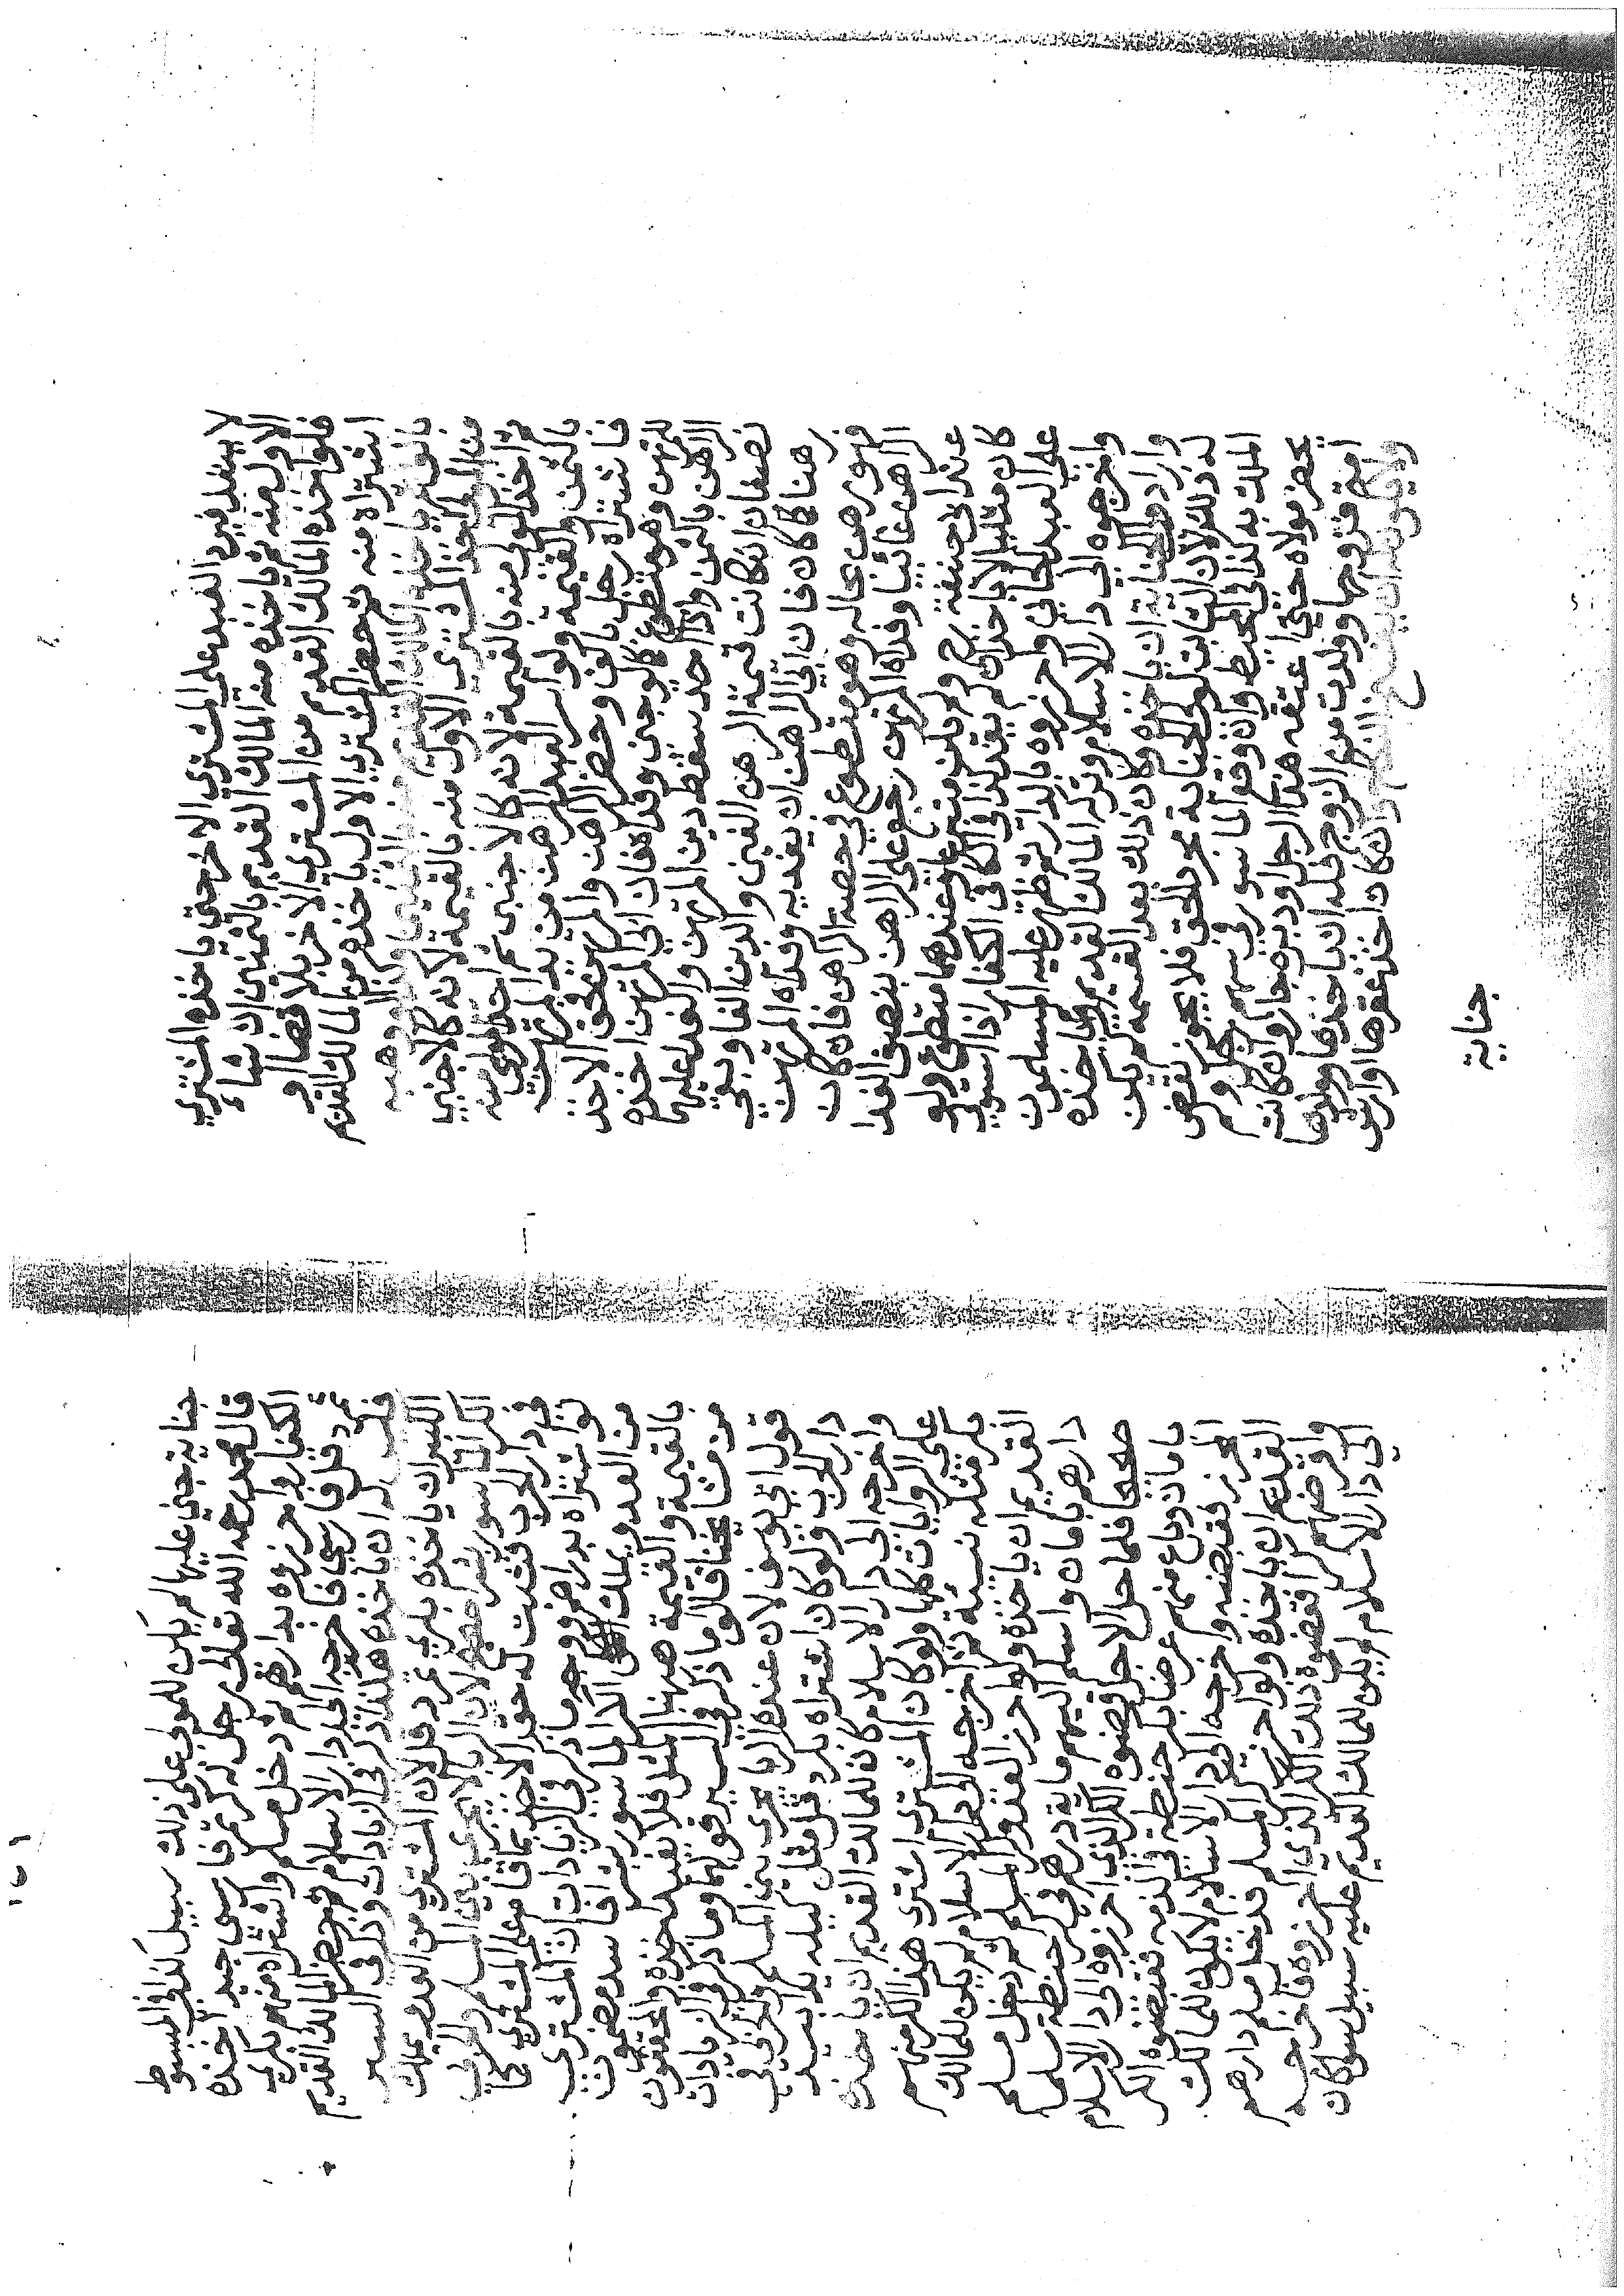 لا سبيل فيه للعبد على المشتري الاخر حتى ياخذه المشتري
الاول منه ثم ياخذه منه المالك القديم بالثمنين ان شاء
فلو اخذه المالك القديم من المشتري الاخر بلا قضا او
اشتراه منه ثم حضر المشتري الاول ياخذه من المالك القديم
ثم اخذ المولى منه بالقيمة لانه كالاجنبي ثم اخذ المولى منه
بالثمن والقيمة ولو اسر العبد الرهن من يد المرتهن
فاشتراه رجل بالف وحضر الراهن والمرتهن فحق الاخذ
للمرتهن وهو متطوع كالو جنى وفداه فان ابى المرتهن اخذه
الراهن بالثمن واذا اخذ سقط دين المرتهن والفدا عليهما
نصفان ان كانت قيمة الرهن الفين والدين الفا وبقي
رهنا كما كان فان ابى الراهن ان يفديه وفداه المرتهن
فهو رهن بحاله وهو متطوع في حصة الراهن فان كان
الراهن غائبا وفداه المرتهن رجع على الراهن بنصف الفدا
عند ابي حنيفة رح ولم يكن متبرعا وعندهما متطوع ولو
كان مثليا لا ياخذ ان لم يفد كذا في الكافي الكفار اذا اسروا
على العبد الجاني واحرزوه بالدار ثم ظهر عليه المسلمون
واخرجوه الى دار الاسلام وترك المالك القديم وما اخذه
واراد ولي الجناية ان ياخذه وكان ذلك بعد القسمة لم يكن
له ذلك لان الثابت لولي الجناية مجرد الحق فلا يجوز نقض
الملك به كذا في المحيط وان وقع الماسور في سهم رجل ولم
يحضر مولاه حتى اعتقه هذا الرجل او دبره جاز وان كانت
امة فزوجها وولدت من الزوج فله ان ياخذها وولدها
وليس له ان يفسخ النكاح وان كان اخذ عقرها او ارش
جناية
جناية جني عليها لم يكن للمولى على ذلك سبيل كذا في المبسوط
قال محمد رحمه الله تعالى رجل له كر تمر فارسي جيد اخذه
الكفار واحرزوه بدارهم ثم دخل مسلم واشتراه منهم بكري
تمر دقل فاخرجه الى دار الاسلام ثم حضر المالك القديم
فليس له ان ياخذه هكذا ذكر في الزيادات وذكر في السير
الكبير ان ياخذه بكري تمر دقل لان المشتري من العدو ملك
الكر الماسور بشرا صحيح لان الربا لا يجري بين المسلم والحربي
في دار الحرب فثبت له حق الاخذ بما قام على المشتري كما
لو اشتراه بدراهم وجه ما ذكر في الزيادات ان المشتري
من العدو ملك الكر الماسور بشرا فاسد مضمون
بالقيمة والقيمة ههنا المثل فلا يفيد اخذه والمحققون
من مشايخنا قالوا ما ذكر في السير قولهما وما ذكر في الزيادات
قول ابي يوسف لان عنده الربا يجري بين المسلم والحربي في
دار الحرب ولو كان اشتراه بكر دقل مثل كيله يدا بيد
واخرجه الى دار الاسلام كان للمالك القديم ان ياخذه
على الروايات كلها ولو كان المشتري اشترى هذا الكر منهم
بكر مثله نسية ثم اخرجه الى دار الاسلام لم يكن للمالك
القديم ان ياخذه ولو احرز العدو كر المسلم ثم دخل مسلم
دارهم بامان واسلم اليهم ماية درهم في كر حنطة سلما
صحيحا فلما حل الاجل قضوه الكر الذي احرزوه الى دار الاسلام
بامان وباع منهم عرضا بكر حنطة في الذمة فقضوه الكر
المحرز فقبضه واخرجه الى دار الاسلام لا يكون للمالك
القديم ان ياخذه ولو احرزوا كر المسلم فدخل مسلم دارهم
واقرضهم كرا فقضوه ذلك الكر الذي احرزوه فاخرجه
الى دار الاسلام لم يكن للمالك القديم عليه سبيل سوا كان